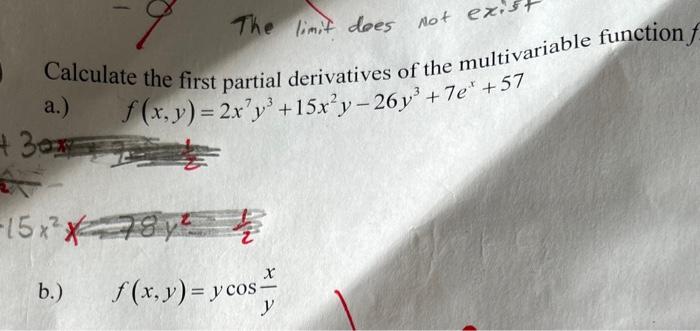 The limit does not exist
Calculate the first partial derivatives of the multivariable function f
a.) f(x, y) = 2x⁷y³ + 15x²y − 26y³ + 7eˣ + 57
+ 30x
½
15x² x − 78y² ½
b.) f(x, y) = y cos x/y